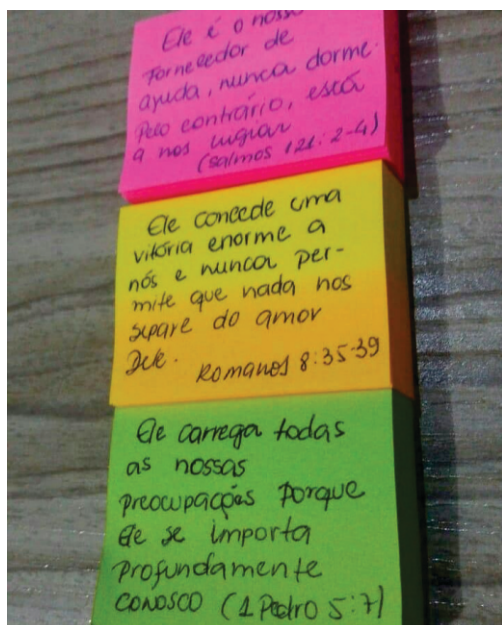 Ele é o nosso
Fornecedor de
ajuda, nunca dorme.
Pelo contrário, está
a nos vigiar
(Salmos 121: 2-4)
Ele concede uma
vitória enorme a
nós e nunca per-
mite que nada nos
separe do amor
Dele.
Romanos 8:35-39
Ele carrega todas
as nossas
preocupações porque
Ele se importa
profundamente
conosco (1 Pedro 5:7)